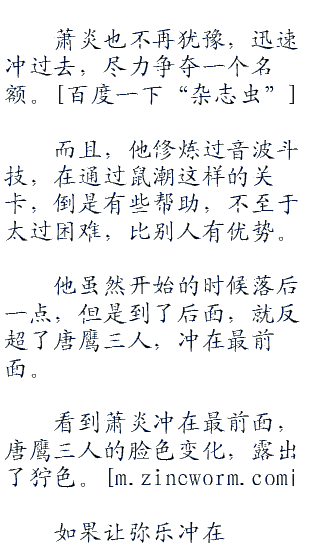 萧炎也不再犹豫，迅速
冲过去，尽力争夺一个名
额。[百度一下“杂志虫”]
而且，他修炼过音波斗
技，在通过鼠潮这样的关
卡，倒是有些帮助，不至于
太过困难，比别人有优势。
他虽然开始的时候落后
一点，但是到了后面，就反
超了唐鹰三人，冲在最前
面。
看到萧炎冲在最前面，
唐鹰三人的脸色变化，露出
了狞色。[m.zincworm.com]
如果让弥乐冲在